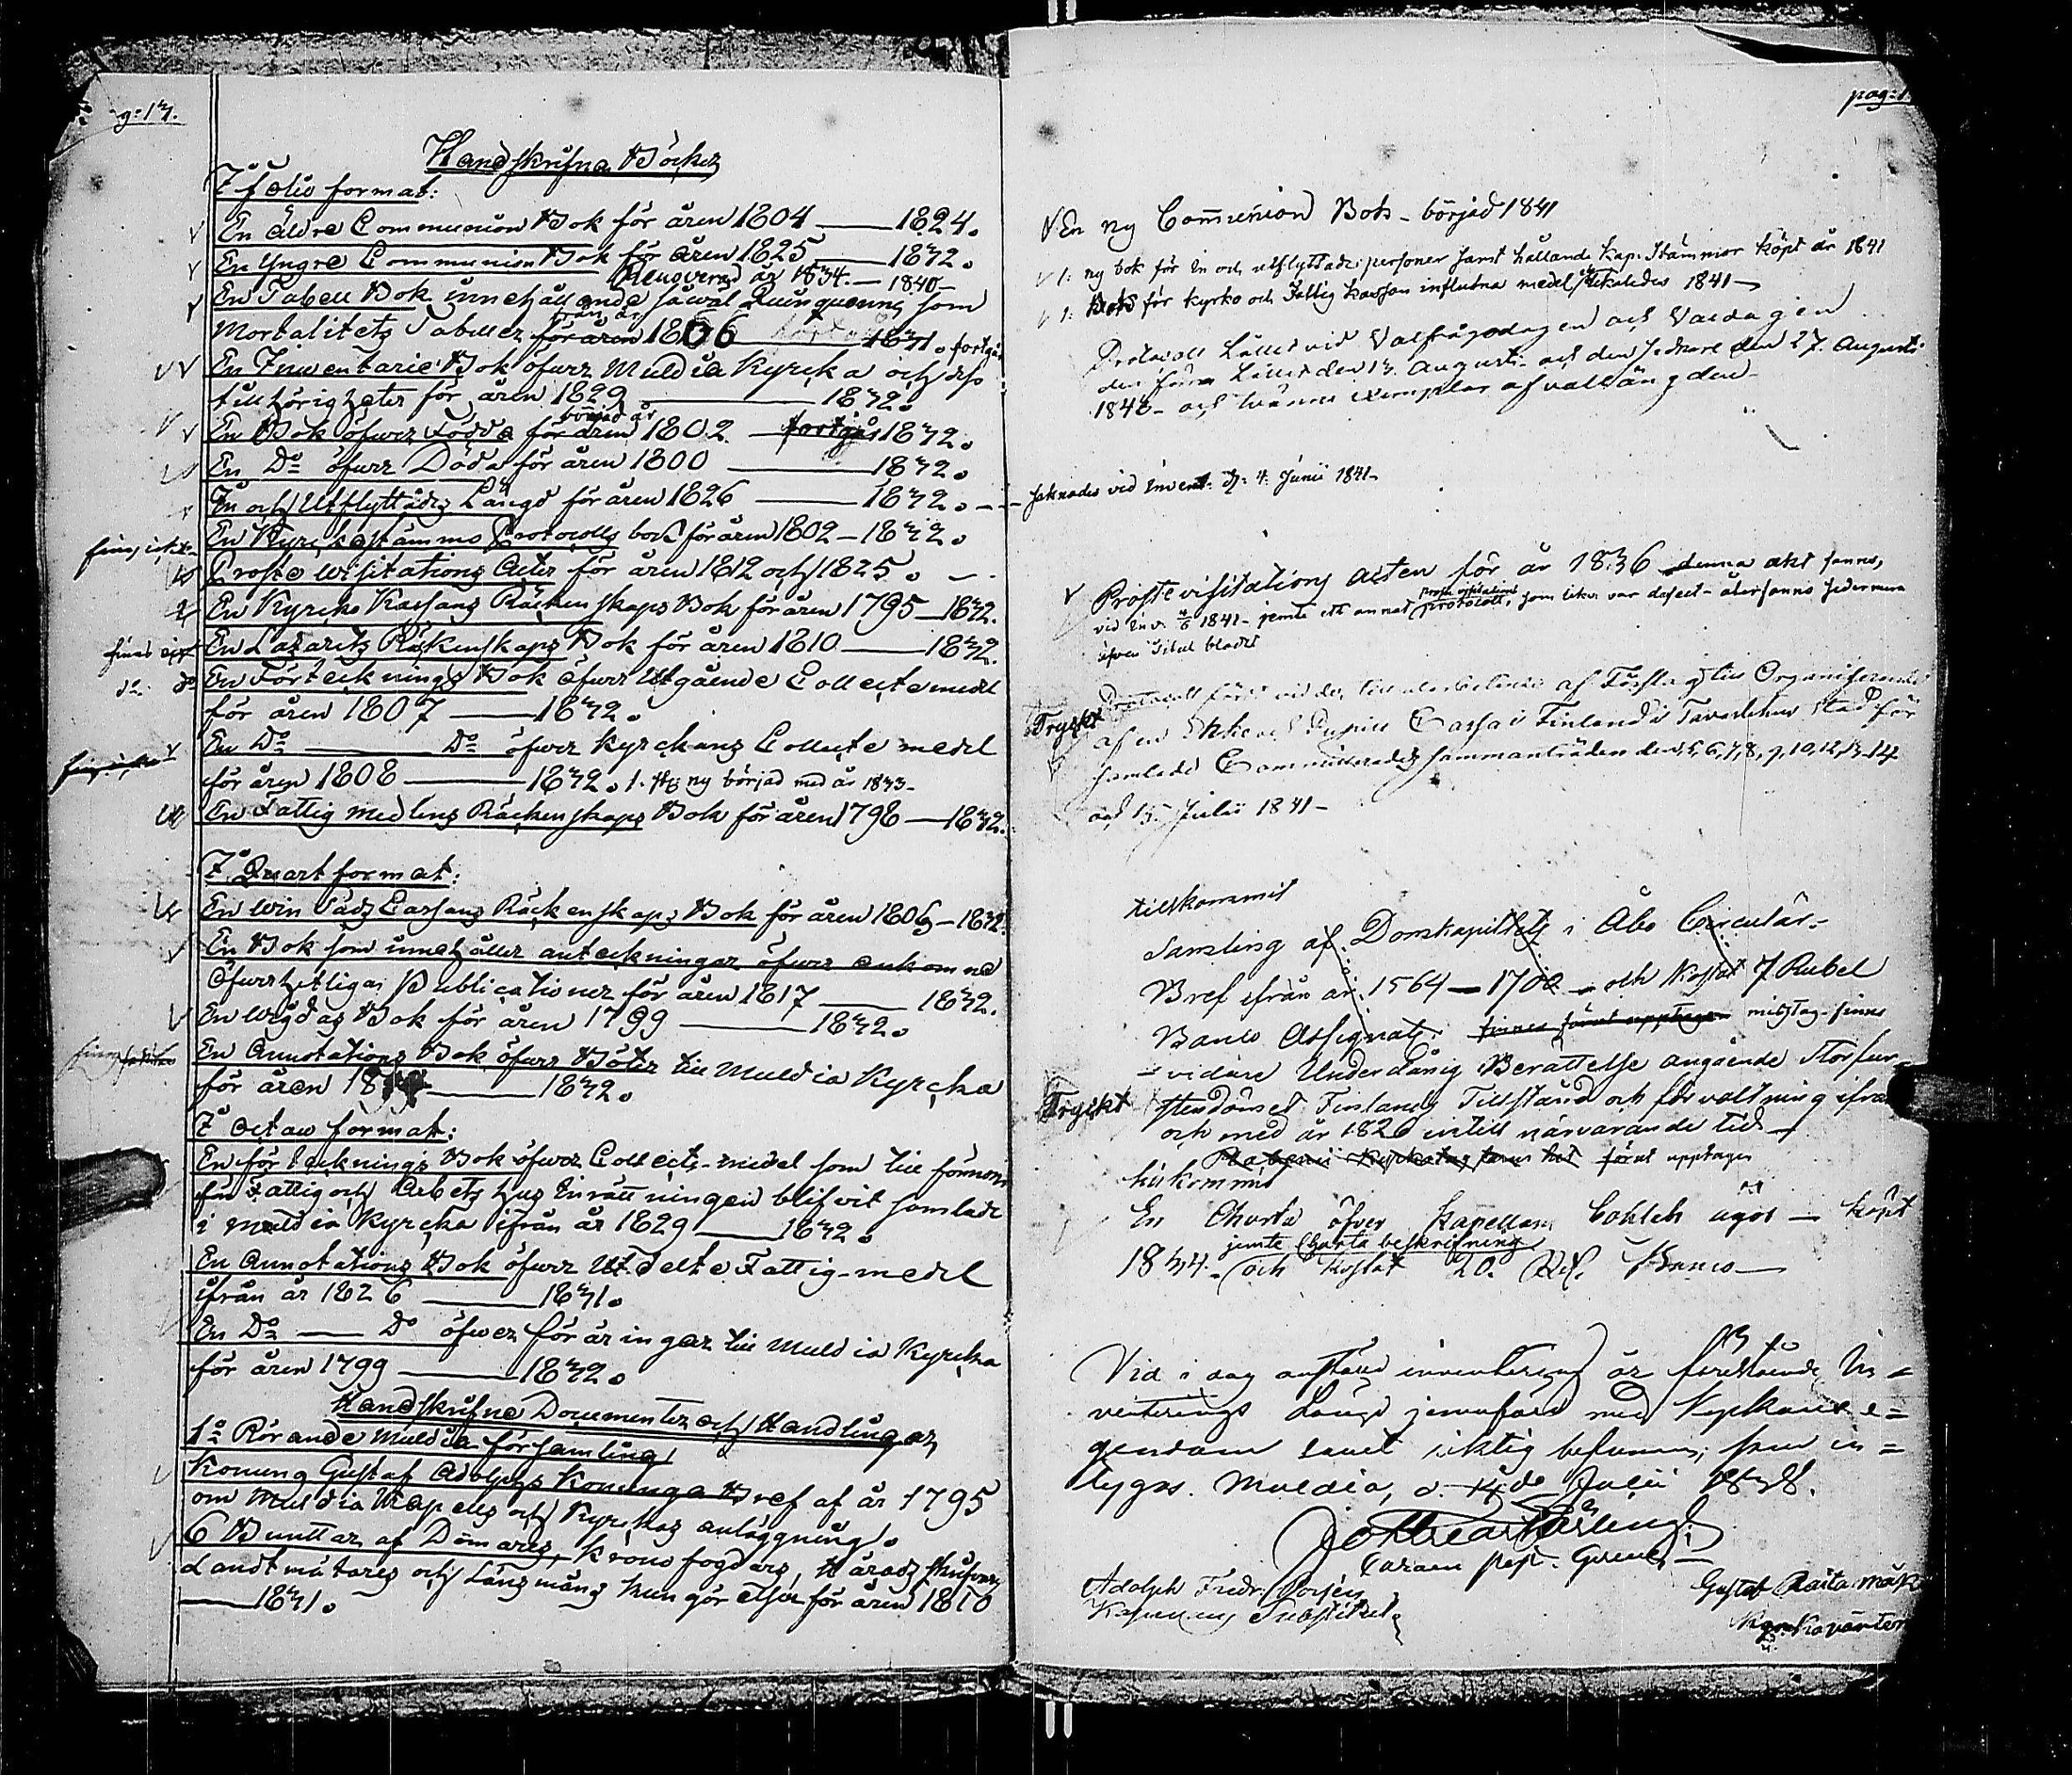 g: 17.
Handskrifna Böcker
I folio format:
En äldre Communion Bok för åren 1804 — 1824.
En Yngre Communion Bok för åren 1825 — 1832.
är 1834. — 1840 —
En Tabell Bok innehållande såwäl som
Mortalitets Tabeller för åren 1806 1831. fortgår
från år
En Inventarie Bok öfwer Muldia Kyrcka och dess
tillhörigheter för åren 1829 — 1832.
En Bok öfwer Födda för åren 1802. — fortgår 1832.
början år
En Do öfwer Döda för åren 1800 — 1832.
In och Utflyttades Längd för åren 1826 — 1832. - -
En Kyrckostämmo Protocolls bok för åren 1802 — 1832.
finns icke
Proste Wisitations Acter för åren 1812 och 1825.
En Kyrcko Kassans Räckenskaps Bok för åren 1795 — 1832.
En Lazarets Räckenskaps Bok för åren 1810 — 1832.
finnes ej
En Förtecknings Bok öfwer Utgående Collecte medel
do. do
för åren 1807 — 1832.
En Do — Do öfwer Kyrckans Collecte medel
för åren 1808 — 1832. 1. ny börjad med år 1833 —
En Fattig medlens Räckenskaps Bok för åren 1798 — 1832.
I Quart format:
En Win Sads Cassans Räckenskaps Bok för åren 1806 — 1832.
En Bok som innehåller anteckningar öfwer ankomne
Öfwerhetliga Publicationer för åren 1817 — 1832.
En Wigdas Bok för åren 1799 — 1832.
En Annotations Bok öfwer Böter till Muldia Kyrcka
för åren — 1832.
I Octav format:
En förtecknings Bok öfwer Collects-medel som till förmån
för Fattig och Arbets hus Inrättningen blifvit samlade
i Muldia Kyrcka ifrån år 1829 — 1832.
En Annotations Bok öfwer Utdelte Fattig-medel
ifrån år 1826 — 1831.
En Do — Do öfwer Föräringar till Muldia Kyrcka
för åren 1799 — 1832.
Handskrifne Documenter och Handlingar
1o Rörande Muldia församling
Konung Gustaf Adolphs Konunga Bref af år 1795
om Muldia Capells och Kyrckas anläggning.
6 Buntar af Domares, Krono fogdars, Härads skrifvares
Landtmätares och Länsmäns kungörelser för åren 1810
— 1831.
pag: 1
En ny Communion Bok — börjad 1841
1. ny bok för in och utflyttade personer samt hållande kap. Stämmor köpt år 1841
1. Bok för kyrko och Fattig kassan influtna medel 1841 —
Protocoll hållet vid Valfrågodagen och Valdagen
den förra hållet den 13. Augusti och den sednare den 27. Augusti
184 — och tvänne exemplar af vallängden —
saknades vid invent. d. 4. Junii 1841 —
Prostevisitations Acten för år 1836 — denna akt fanns,
vid inv. 4/6 1841 — jemte ett annat protocoll, som icke var defect — återfanns sedermera
äfven Titul bladet
Protocoll fördt vid till utarbetande af Förslag till Organiserandet
Tryckt
af en Enke och Pupill Cassa i Finland i Tavastehus stad för
samlade Committerades sammanträden den 5, 6, 7, 8, 9, 10, 12, 13, 14
och 15. Julii 1841 —
tillkommit
Samling af Domkapitlets i Åbo Circulär-
Bref ifrån år 1564 — 1700 — och kostat 7 Rubel
Banco Assignat: finnes förut upptagen misstag finnes
vidare Underdånig Berättelse angående Storfur-
Tryckt
stendömet Finlands Tillstånd och förvaltning ifrån
och med år 1820 intill närvarande tid —
förut upptagen
tilkommit
En Charta öfver Kapellans Bohlets ägor — köpt
jemte Charta beskrifning
1834. och kostat 20. Rd. Banco —
Vid i dag anstäld inventering är förestående In-
venterings Längd jemnförd med Kyrkans e-
gendom samt riktig befunnen; som in-
tygas. Muldia, d. 14de Julii 1838.
Adolph Fredr.
Gustaf Raitamäki